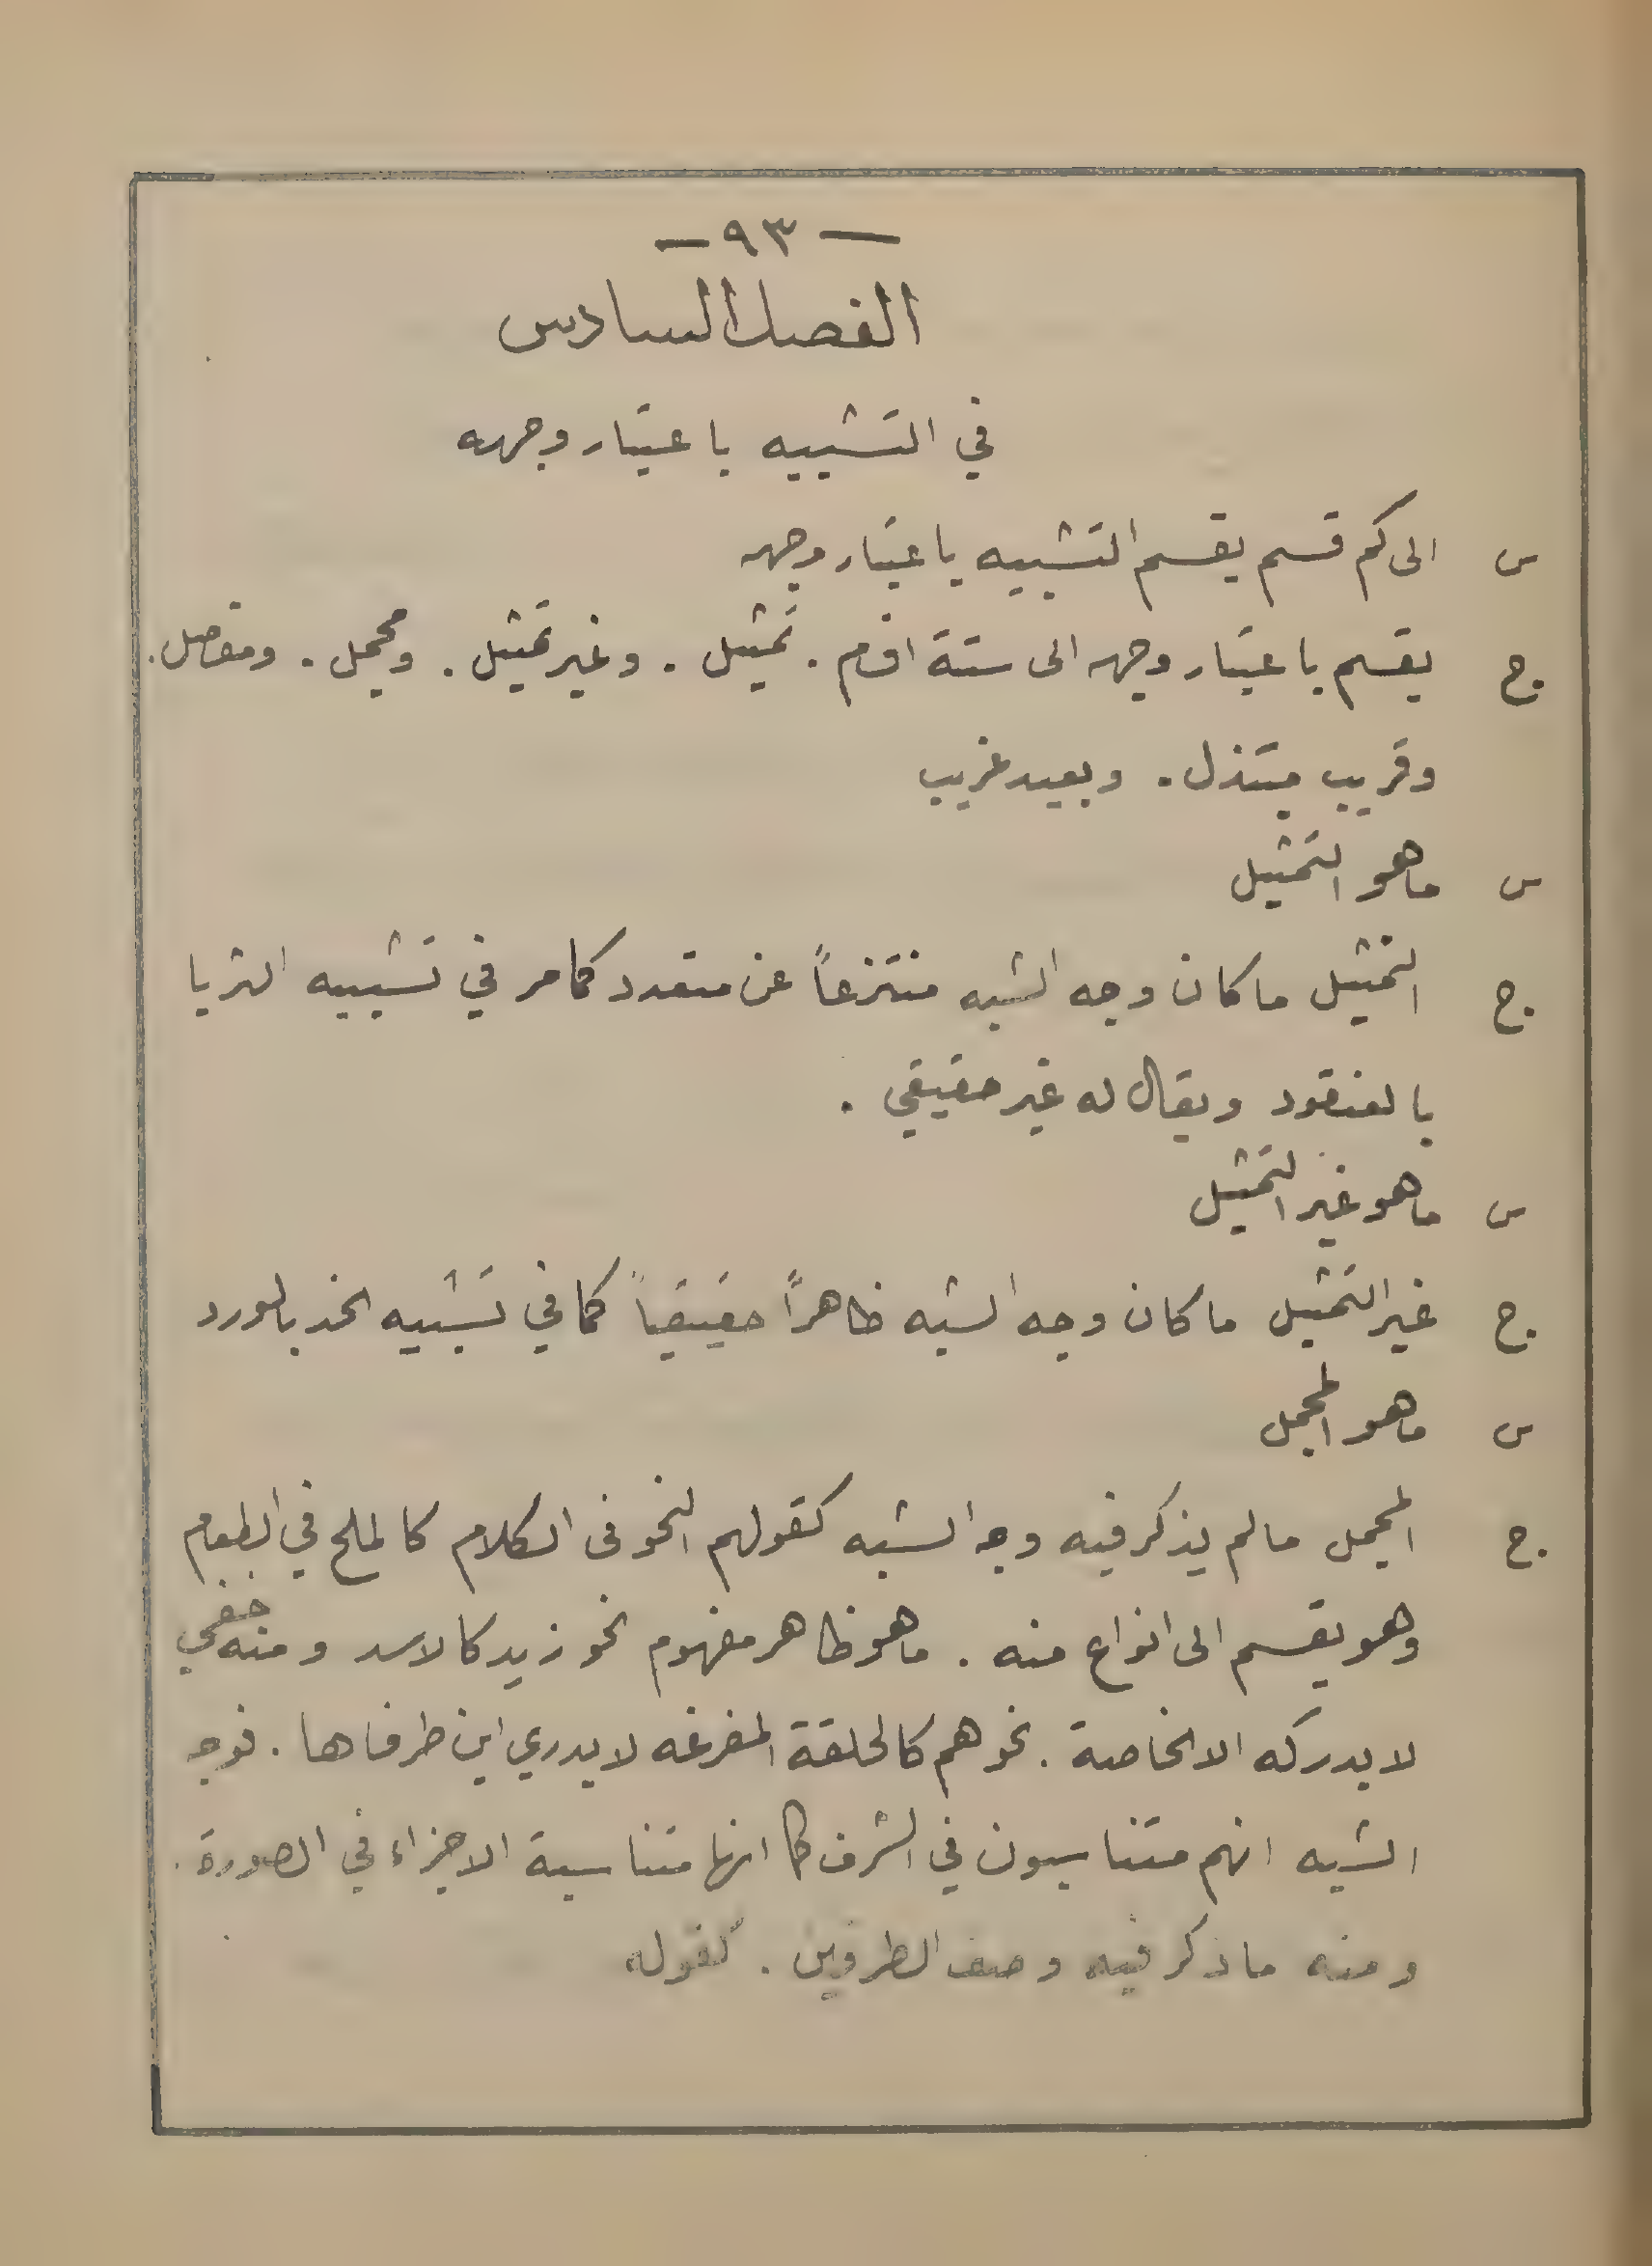 — ٩٣ —
الفصل السادس
في التشبيه باعتبار وجهه
س الى كم قسم يقسم التشبيه باعتبار وجهه
ج. يقسم باعتبار وجهه الى ستة اقسام . تمثيل . وغير تمثيل . ومجمل . ومفصل .
وقريب مبتذل . وبعيد غريب
س ما هو التمثيل
ج. التمثيل ما كان وجه الشبه منتزعاً عن متعدد كما مر في تشبيه الثريا
بالعنقود ويقال له غير حقيقي .
س ما هو غير التمثيل
ج. غير التمثيل ما كان وجه الشبه ظاهراً حقيقياً كما في تشبيه الخد بالورد
س ما هو المجمل
ج. المجمل ما لم يذكر فيه وجه الشبه كقولهم النحو في الكلام كالملح في الطعام
وهو يقسم الى انواع منه . ما هو ظاهر مفهوم نحو زيد كالاسد ومنه خفي
لا يدركه الا الخاصة . نحو هم كالحلقة المفرغه لا يدري اين طرفاها . فوجه
الشبه انهم متناسبون في الشرف كما انها متناسبة الاجزاء في الصورة .
ومنه ما ذكر فيه وصف الطرفين . كقوله